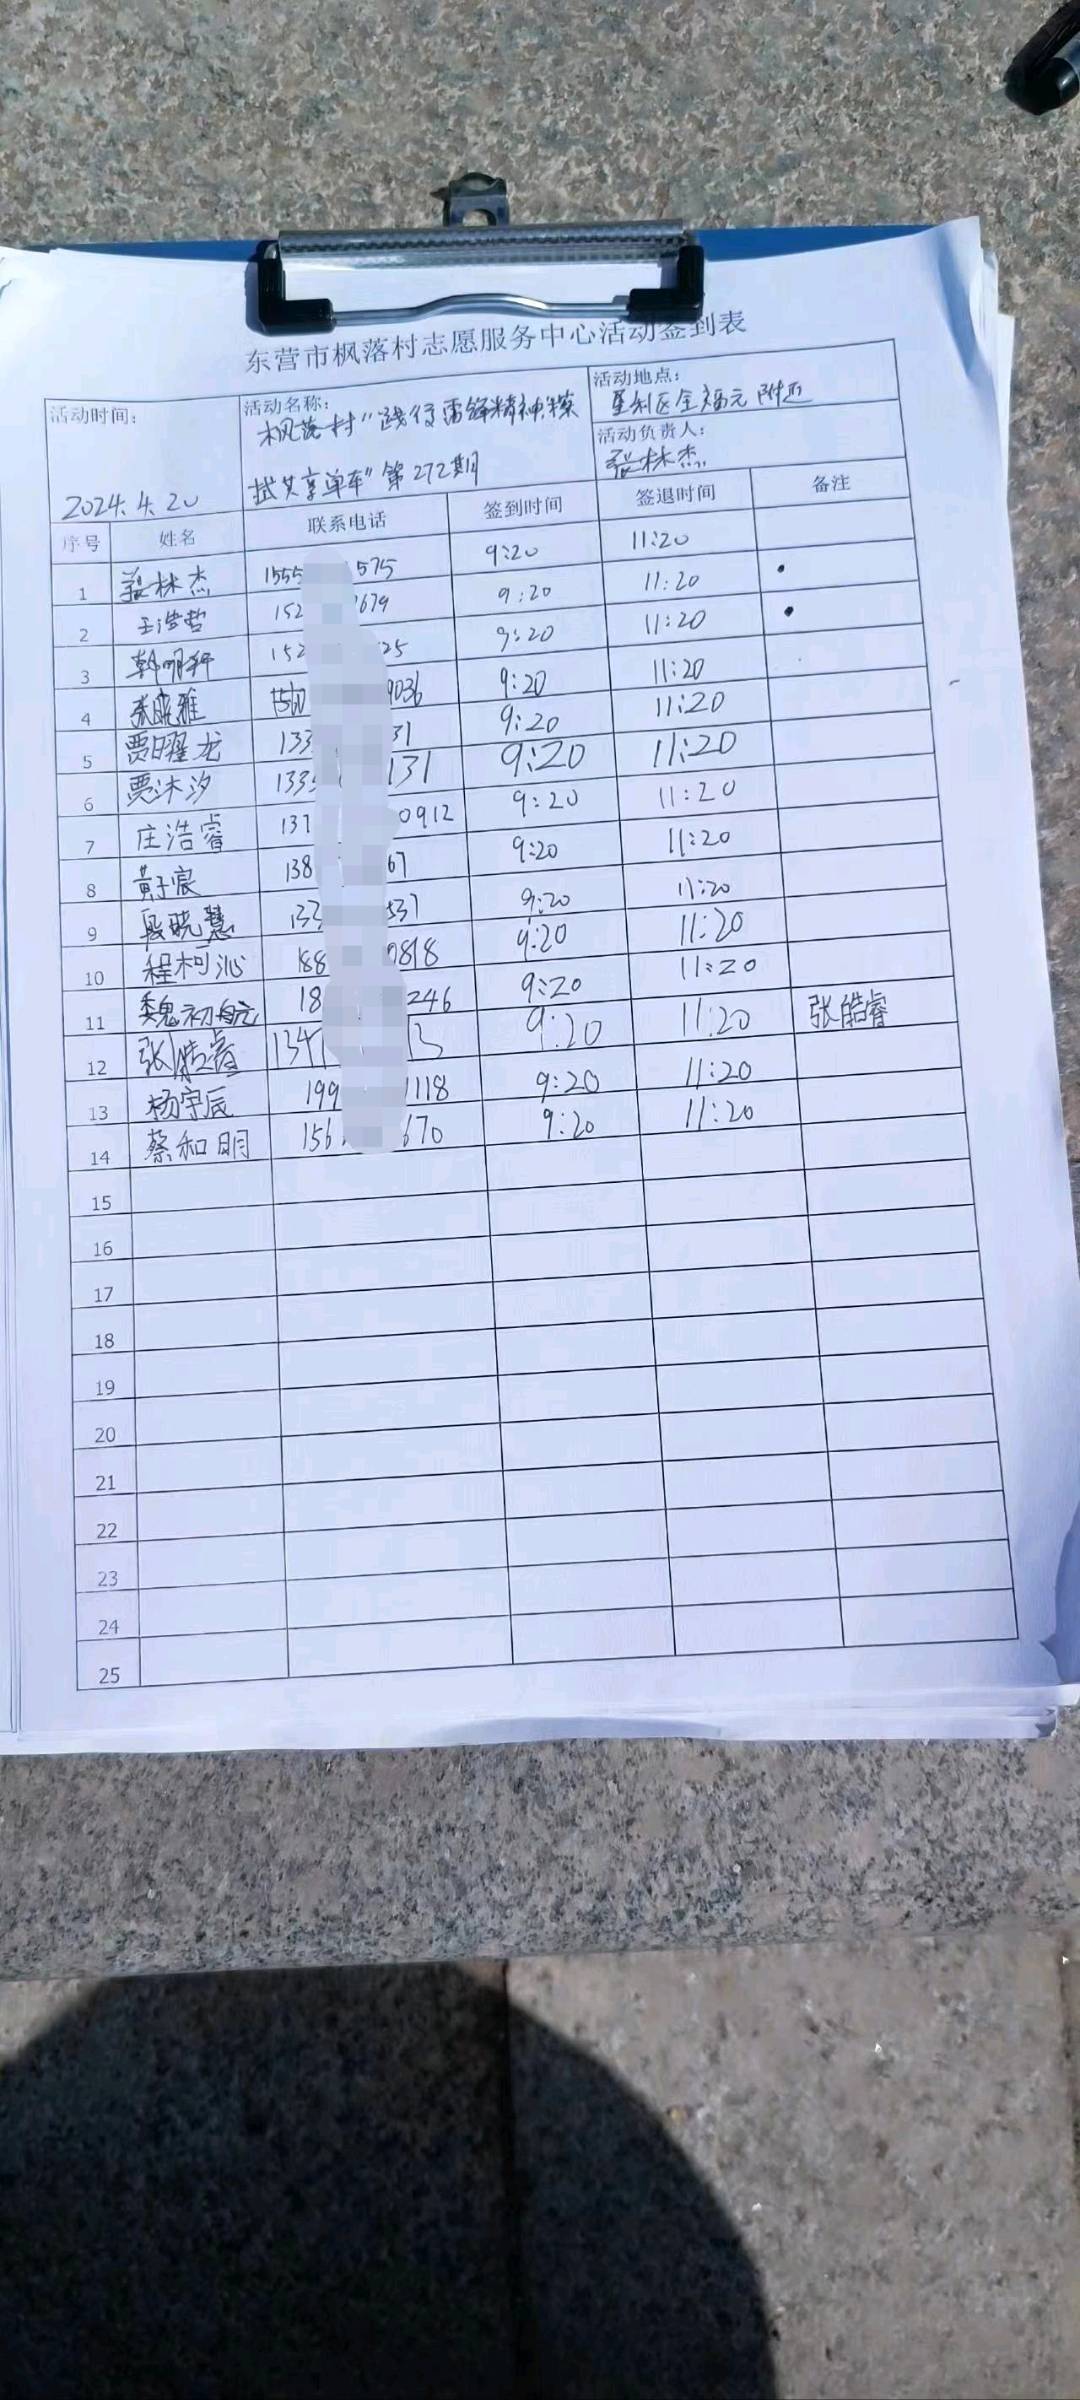 东营市枫落村志愿服务中心活动签到表
活动时间: 2024.4.20
活动名称: 枫落村"践行雷锋精神擦
拭共享单车"第272期
活动地点: 垦利区全福元附近
活动负责人: 张林杰
序号 姓名 联系电话 签到时间 签退时间 备注
1 张林杰 1555 575 9:20 11:20
2 王浩哲 152 7679 9:20 11:20
3 韩明轩 152 25 9:20 11:20
4 张晓雅 150 9036 9:20 11:20
5 贾曜龙 133 31 9:20 11:20
6 贾沐汐 133 131 9:20 11:20
7 庄浩睿 137 0912 9:20 11:20
8 黄子宸 138 67 9:20 11:20
9 段晓慧 133 537 9:20 11:20
10 程柯沁 188 0818 9:20 11:20
11 魏初航 18 246 9:20 11:20
12 张皓睿 134 13 9:20 11:20 张皓睿
13 杨宇辰 199 1118 9:20 11:20
14 蔡和明 156 670 9:20 11:20
15
16
17
18
19
20
21
22
23
24
25